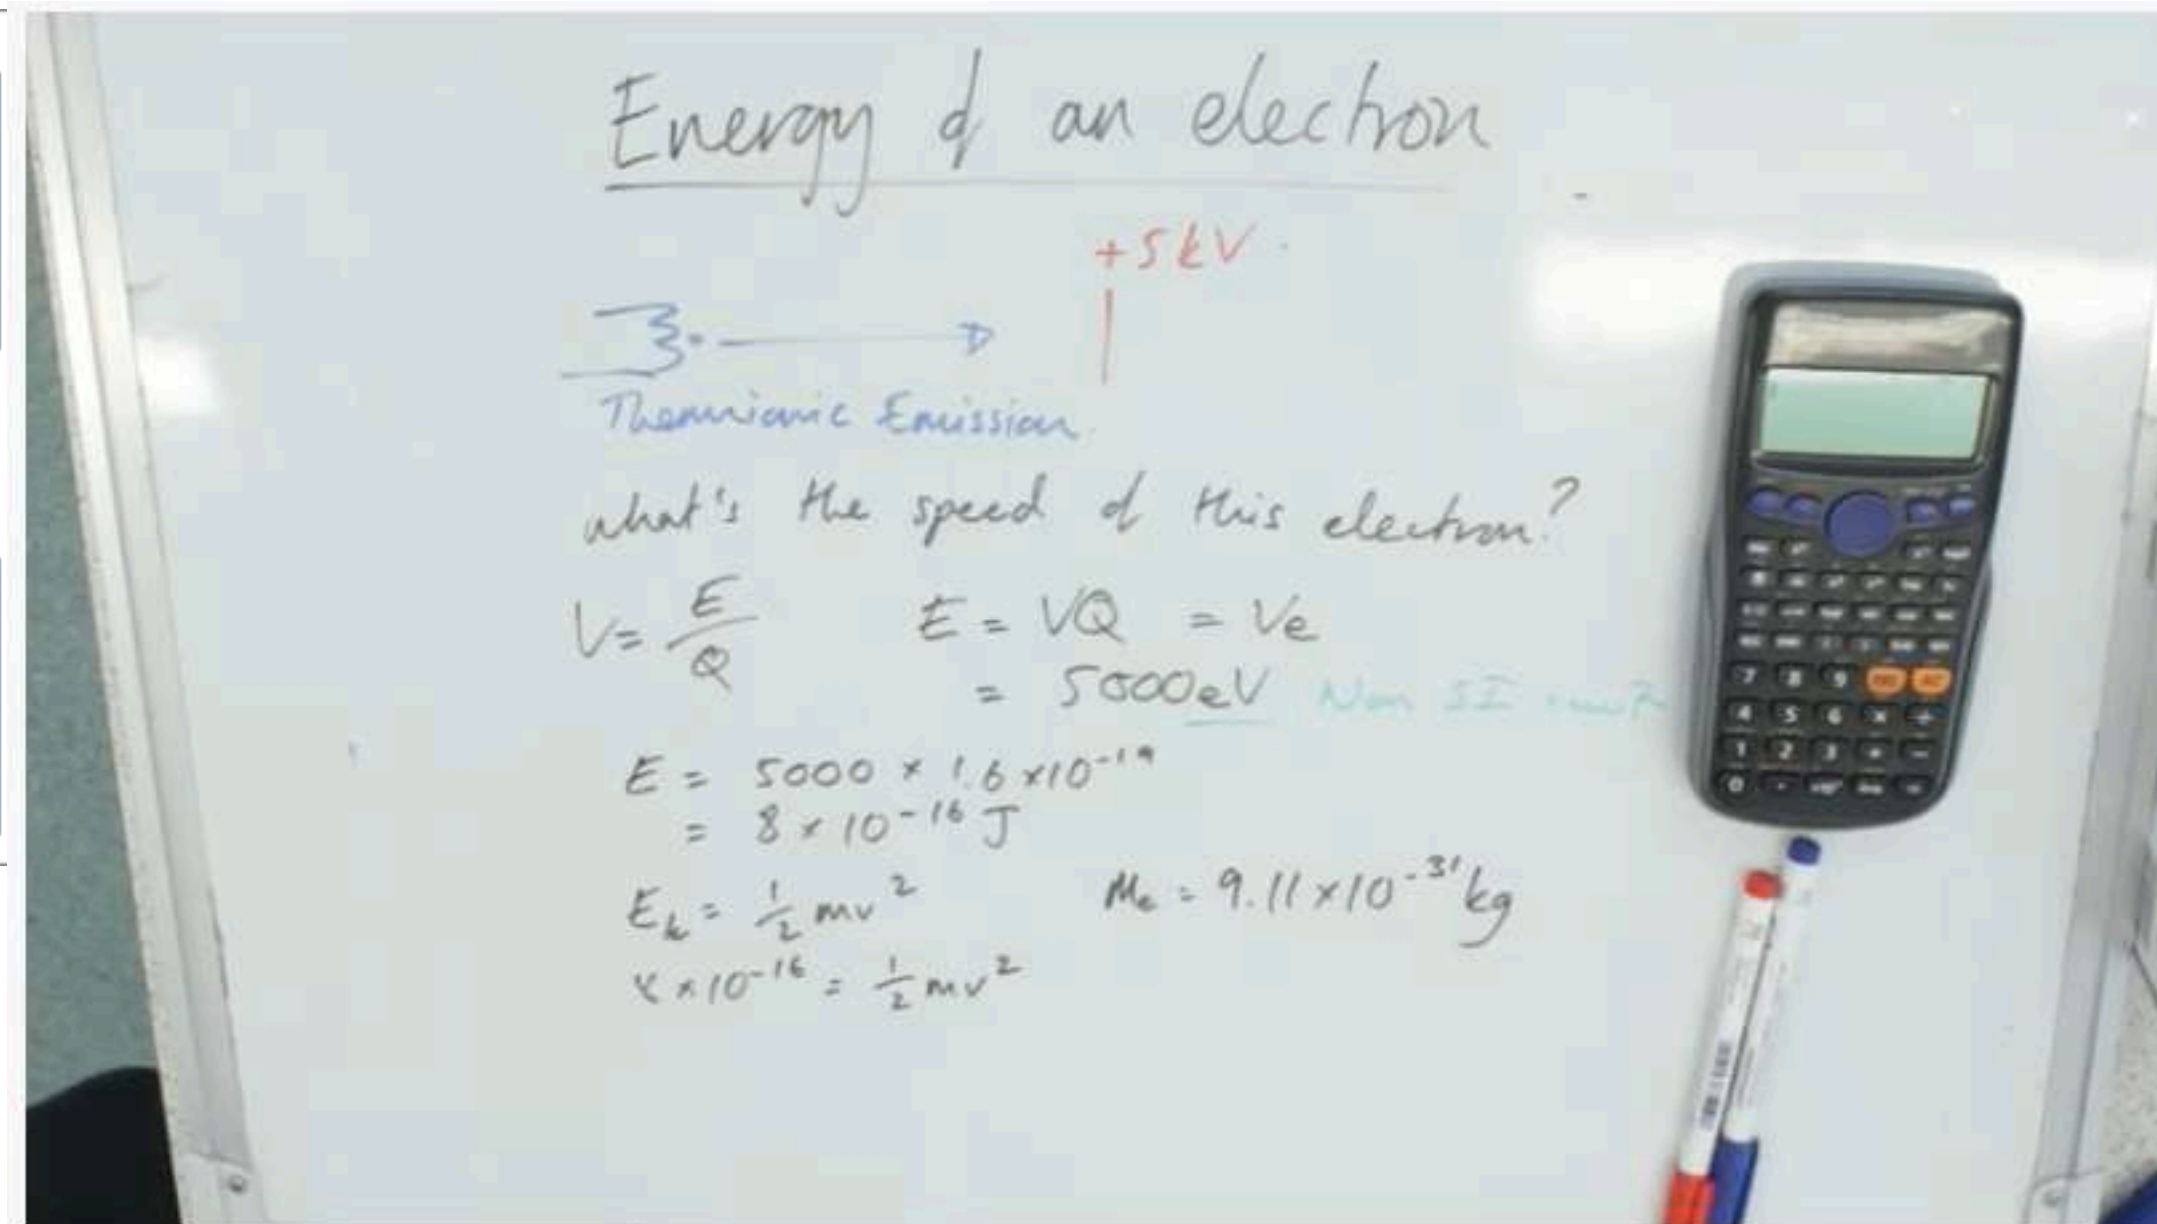 Energy of an electron
+5kV
Thermionic Emission.
what's the speed of this electron?
V = E/Q   E = VQ = Ve
= 5000eV Non SI
E = 5000 × 1.6 × 10⁻¹⁹
= 8 × 10⁻¹⁶ J
Eₖ = ½ mv²   Mₑ = 9.11 × 10⁻³¹ kg
8 × 10⁻¹⁶ = ½ mv²
7 8 9
4 5 6 × ÷
1 2 3 + −
0 .